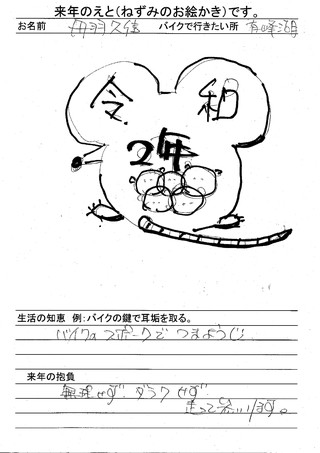 来年のえと(ねずみのお絵かき)です。
お名前 丹羽久佳 バイクで行きたい所 有峰湖
令和
2年
生活の知恵 例:バイクの鍵で耳垢を取る。
バイクのスポークでつまようじ
来年の抱負
無理せず ダラクせず
走って